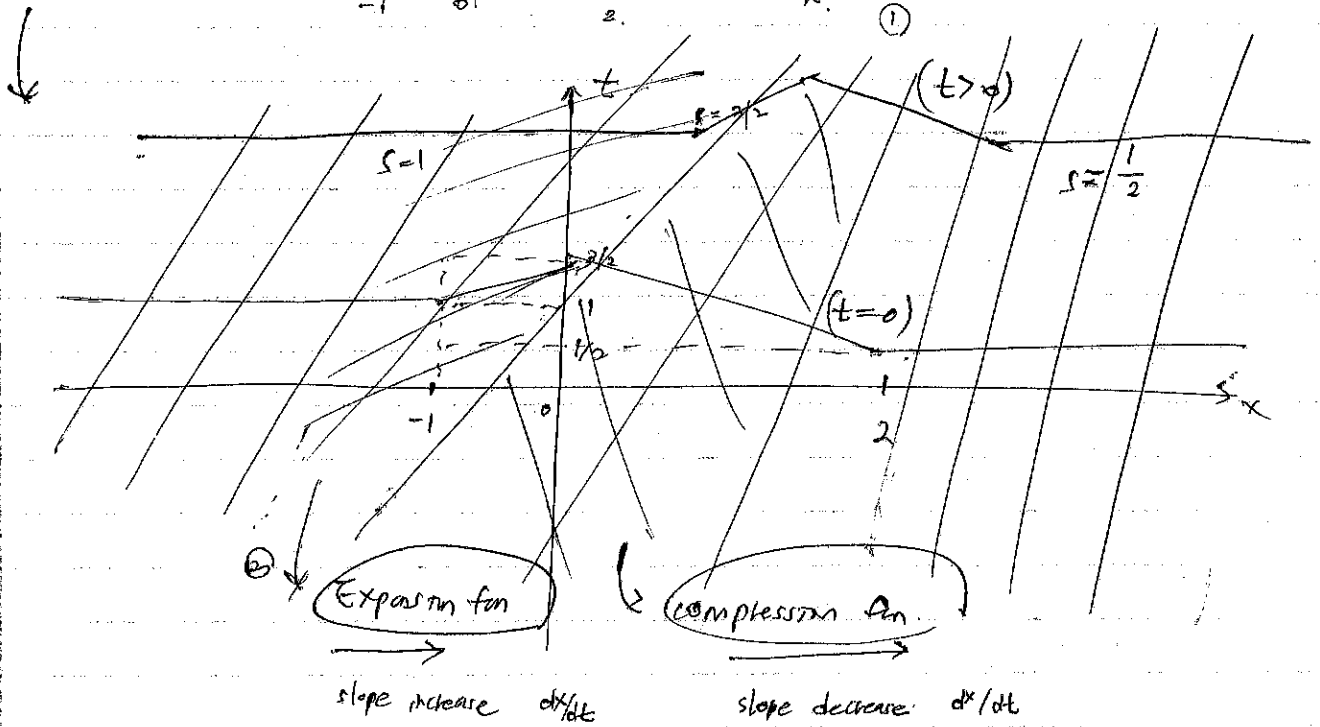 -1 0 2.
①
t
(t>0)
ρ=3/2
ρ=1
ρ=1/2
3/2
1
(t=0)
1/2
-1 0 2 x
②
Expansion fan
compression fan
slope increase dx/dt slope decrease dx/dt